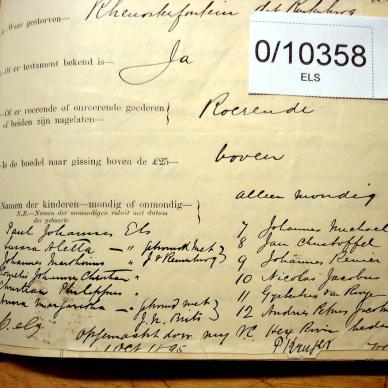 Waar gestorven— Rhenosterfontein dist Rustenburg
0/10358
ELS
Of er testament bekend is— Ja
Of er roerende of onroerende goederen
of beiden zijn nagelaten— Roerende
Is de boedel naar gissing boven de £25— boven
Namen der kinderen—mondig of onmondig— allen mondig
N.B.—Namen der onmondigen voluit met datum
der geboorte
Paul Johannes Els
Susara Aletta — " getrouwd met
Johannes Marthinus " J d
Johannes Christian "
Christian Philippus "
Anna Margaretha — " getrouwd met
J. N. Brits
7 Johannes Michael
8 Jan Christoffel
9 Johannes
10 Nicolas Jacobus
11 Gysbertus van Rooy
12 Andries Petrus Jacobus
Opgemaakt door mij VC Hex Rivier heden
1 Oct 1895
P Kruger